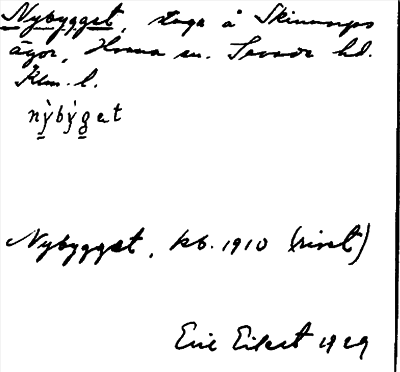 Nybygget, stuga å Skinnarps
ägor, Hossa sn. Sevede hd.
Klm. l.
nỳbýget
Nybygget, kb. 1910 (rivet)
Eric Eilert 1929